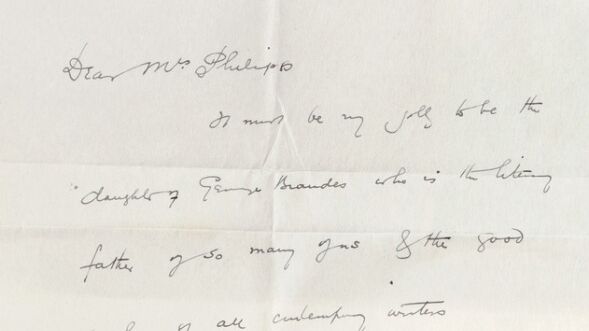 Dear Mrs Philipps
It must be very jolly to be the
daughter of George Brandes who is the literary
father of so many of us & the good
of all contemporary writers